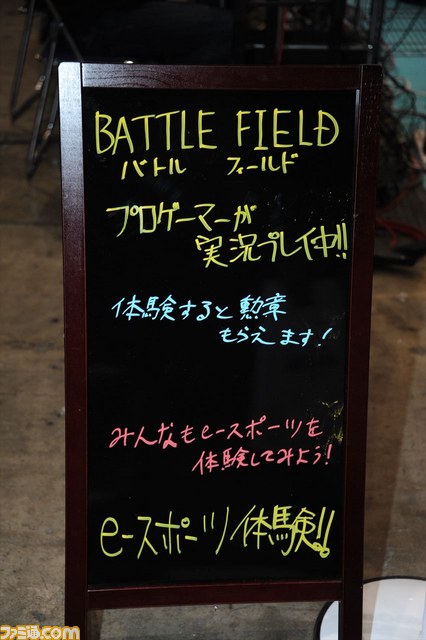 BATTLE FIELD
バトル フィールド
プロゲーマーが
実況プレイ中!!
体験すると勲章
もらえます!
みんなもe-スポーツを
体験してみよう!
e-スポーツ体験!!
ファミ通.com